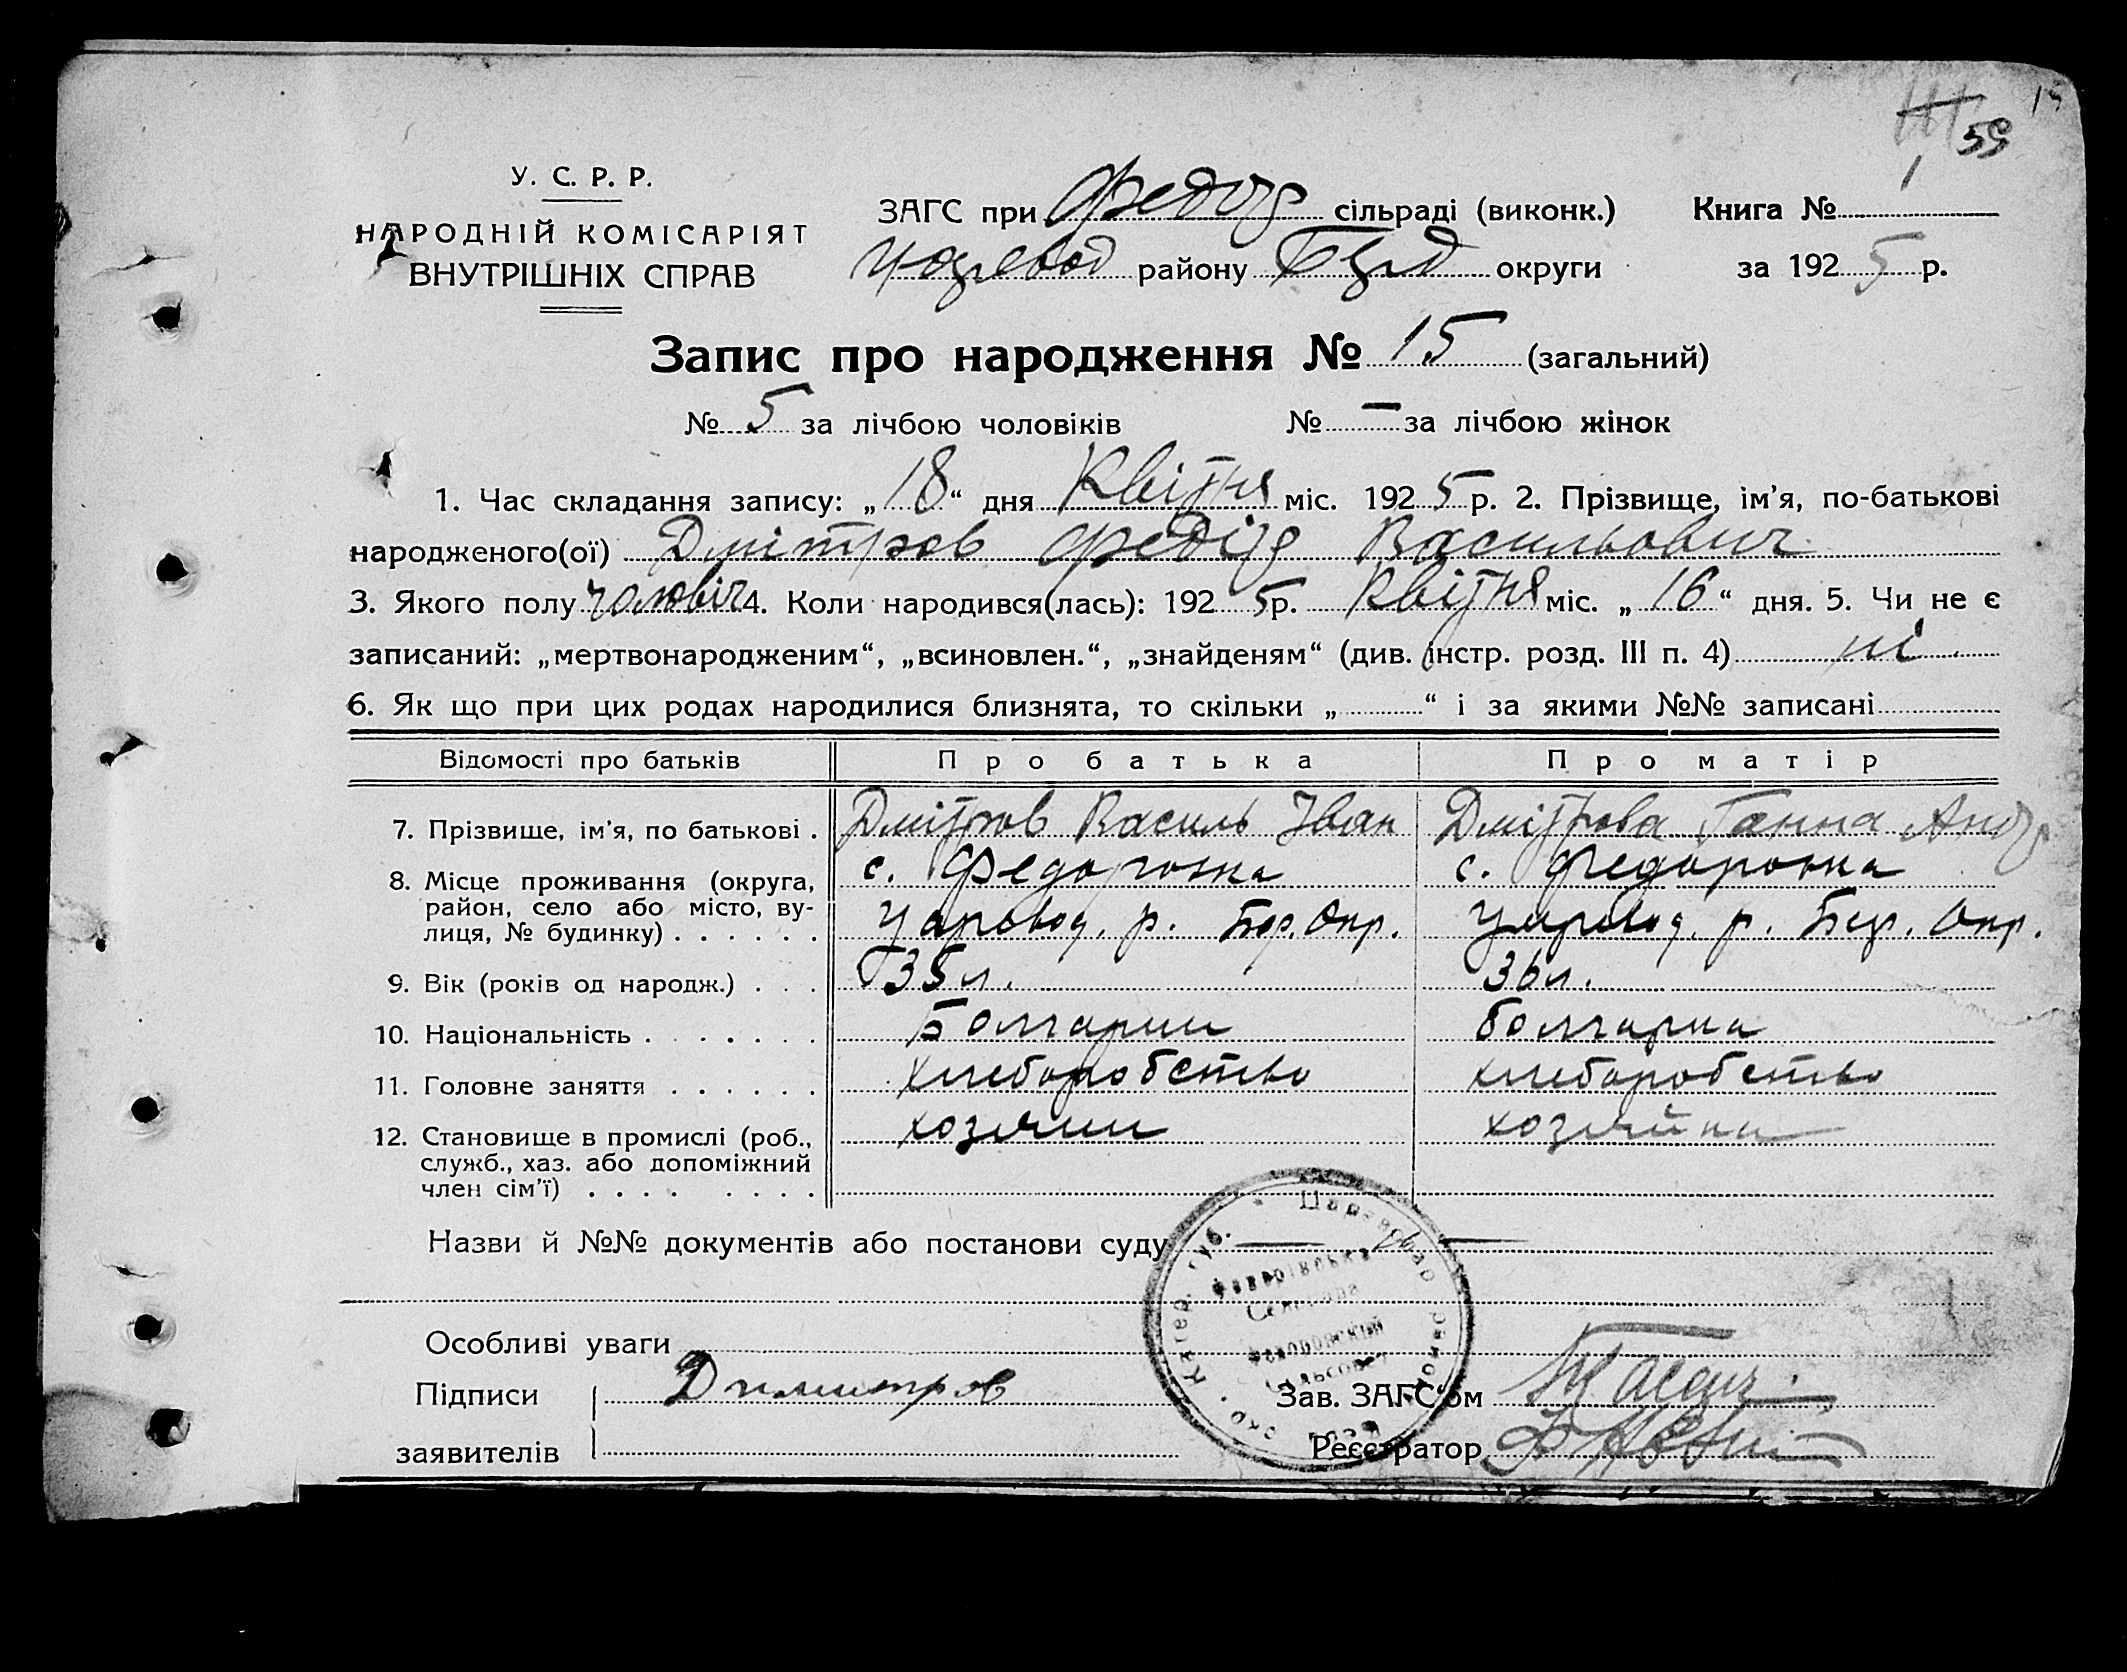 59
У. С. Р. Р.
НАРОДНІЙ КОМІСАРІЯТ
ВНУТРІШНІХ СПРАВ
ЗАГС при Федор сільраді (виконк.)
Книга № 1
району округи
за 1925 р.
Запис про народження № 15 (загальний)
№ 5 за лічбою чоловіків № — за лічбою жінок
1. Час складання запису: „18“ дня Квітня міс. 1925 р. 2. Прізвище, ім’я, по-батькові
народженого(ої) Дмітров Федір Васильович
3. Якого полу чоловіч 4. Коли народився(лась): 1925 р. Квітня міс. „16“ дня. 5. Чи не є
записаний: „мертвонародженим“, „всиновлен.“, „знайденям“ (див. інстр. розд. III п. 4) ні
6. Як що при цих родах народилися близнята, то скільки „ “ і за якими №№ записані
Відомості про батьків Про батька Про матір
7. Прізвище, ім’я, по батькові . Дмітров Василь Іван Дмітрова Ганна Андр
8. Місце проживання (округа, район, село або місто, вулиця, № будинку) . . . . . . с. Федоровка с. Федоровка
Царевод. р. Бер. Окр. Царевод. р. Бер. Окр.
9. Вік (років од народж.) . . . 35 л. 36 л.
10. Національність . . . . . . . Болгарин болгарка
11. Головне заняття . . . . . . хлеборобство хлеборобство
12. Становище в промислі (роб., служб., хаз. або допоміжний член сім’ї) . . . . . . . . хозяин хозяйка
Назви й №№ документів або постанови суду —
Федорівська
Сельрада
Федоровский
Сельсовет
Особливі уваги
Підписи Димитров
заявителів
Зав. ЗАГС’ом
Реєстратор